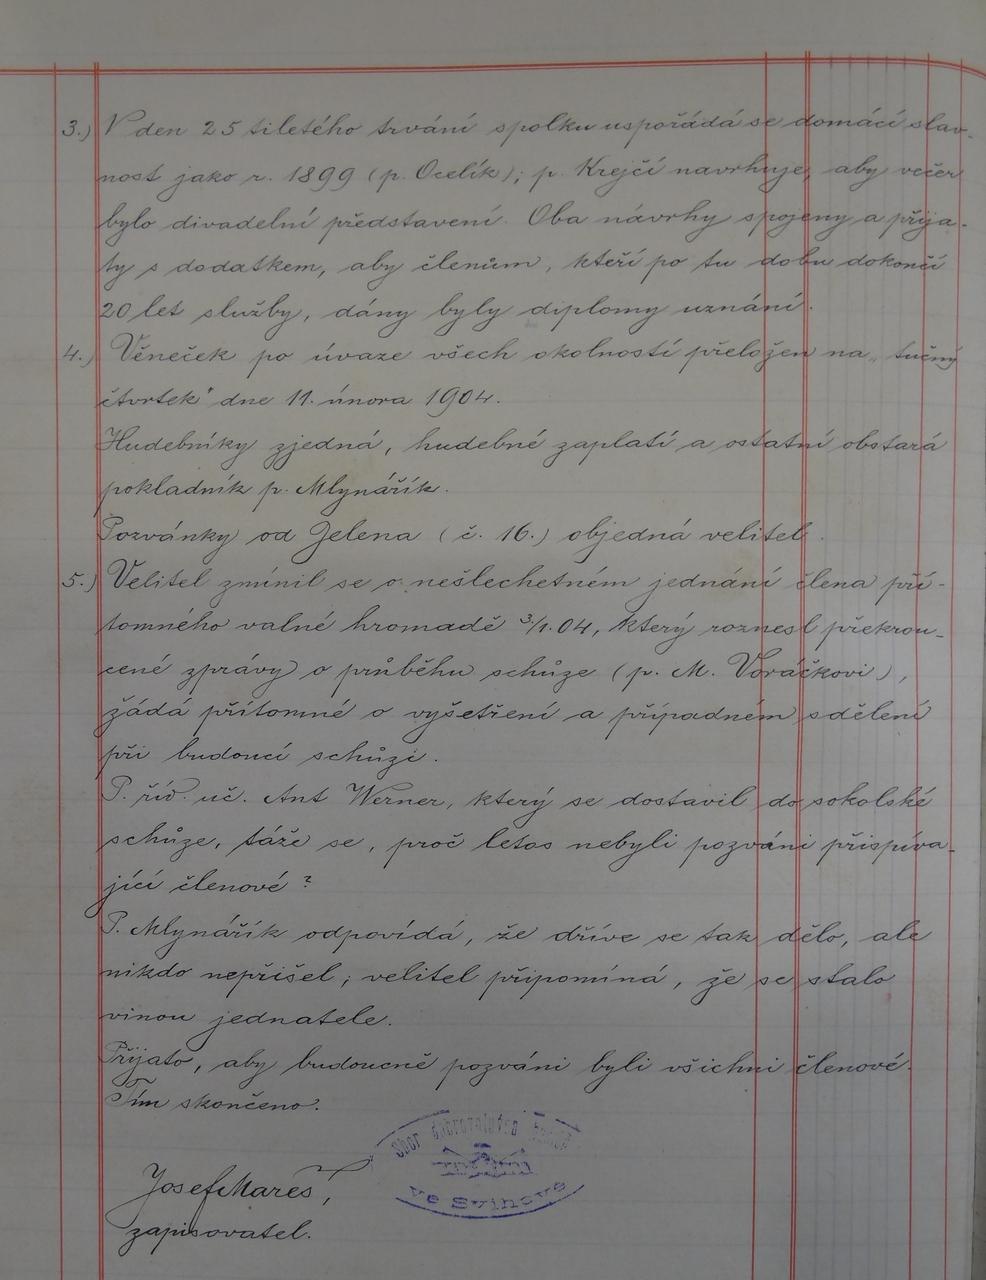 3.) V den 25 tiletého trvání spolku uspořádá se domácí slav-
nost jako r. 1899 (p. Ocelík); p. Krejčí navrhuje, aby večer
bylo divadelní představení. Oba návrhy spojeny a přija-
ty s dodatkem, aby členům, kteří po tu dobu dokončí
20 let služby, dány byly diplomy uznání.
4.) Věneček po úvaze všech okolností přeložen na „tučný
čtvrtek" dne 11. února 1904.
Hudebníky zjedná, hudebné zaplatí a ostatní obstará
pokladník p. Mlynářík.
Pozvánky od Jelena (č. 16.) objedná velitel.
5.) Velitel zmínil se o nešlechetném jednání člena pří-
tomného valné hromadě 3/1.04, který roznesl překrou-
cené zprávy o průběhu schůze (p. M. Voráčkovi),
žádá přítomné o vyšetření a případném sdělení
při budoucí schůzi.
P. říd. uč. Ant Werner, který se dostavil do sokolské
schůze, táže se, proč letos nebyli pozváni přispíva-
jící členové?
P. Mlynářík odpovídá, že dříve se tak dělo, ale
nikdo nepřišel; velitel připomíná, že se stalo
vinou jednatele.
Přijato, aby budoucně pozváni byli všichni členové.
Tím skončeno.
Sbor dobrovolných hasičů
ve Svinově
Josef Mareš,
zapisovatel.